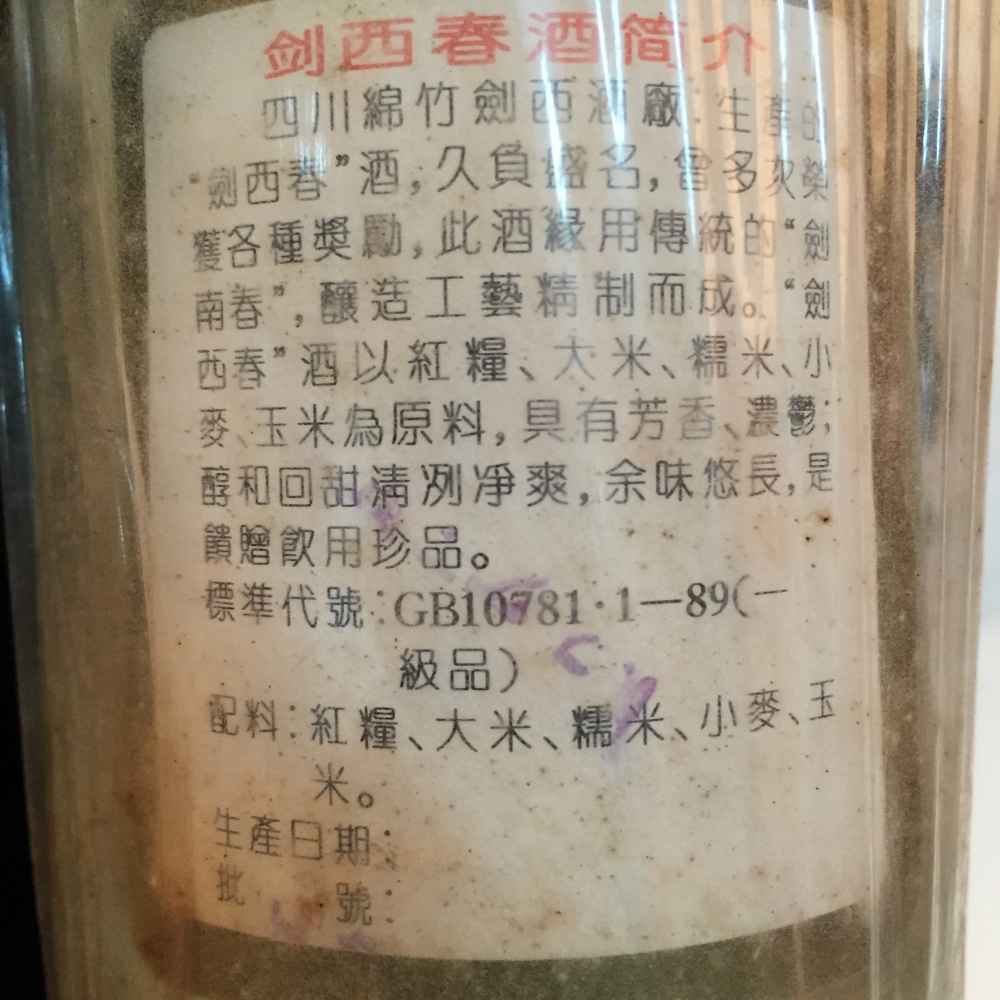 剑西春酒简介
四川綿竹劍西酒廠:生產的
“劍西春”酒,久負盛名,曾多次榮
獲各種奬勵,此酒緣用傳統的“劍
南春”,釀造工藝精制而成。“劍
西春”酒以紅糧、大米、糯米、小
麥、玉米為原料,具有芳香、濃鬱;
醇和回甜清冽凈爽,余味悠長,是
饋贈飲用珍品。
標準代號:GB10781·1—89(一
級品)
配料:紅糧、大米、糯米、小麥、玉
米。
生產日期:
批 號: